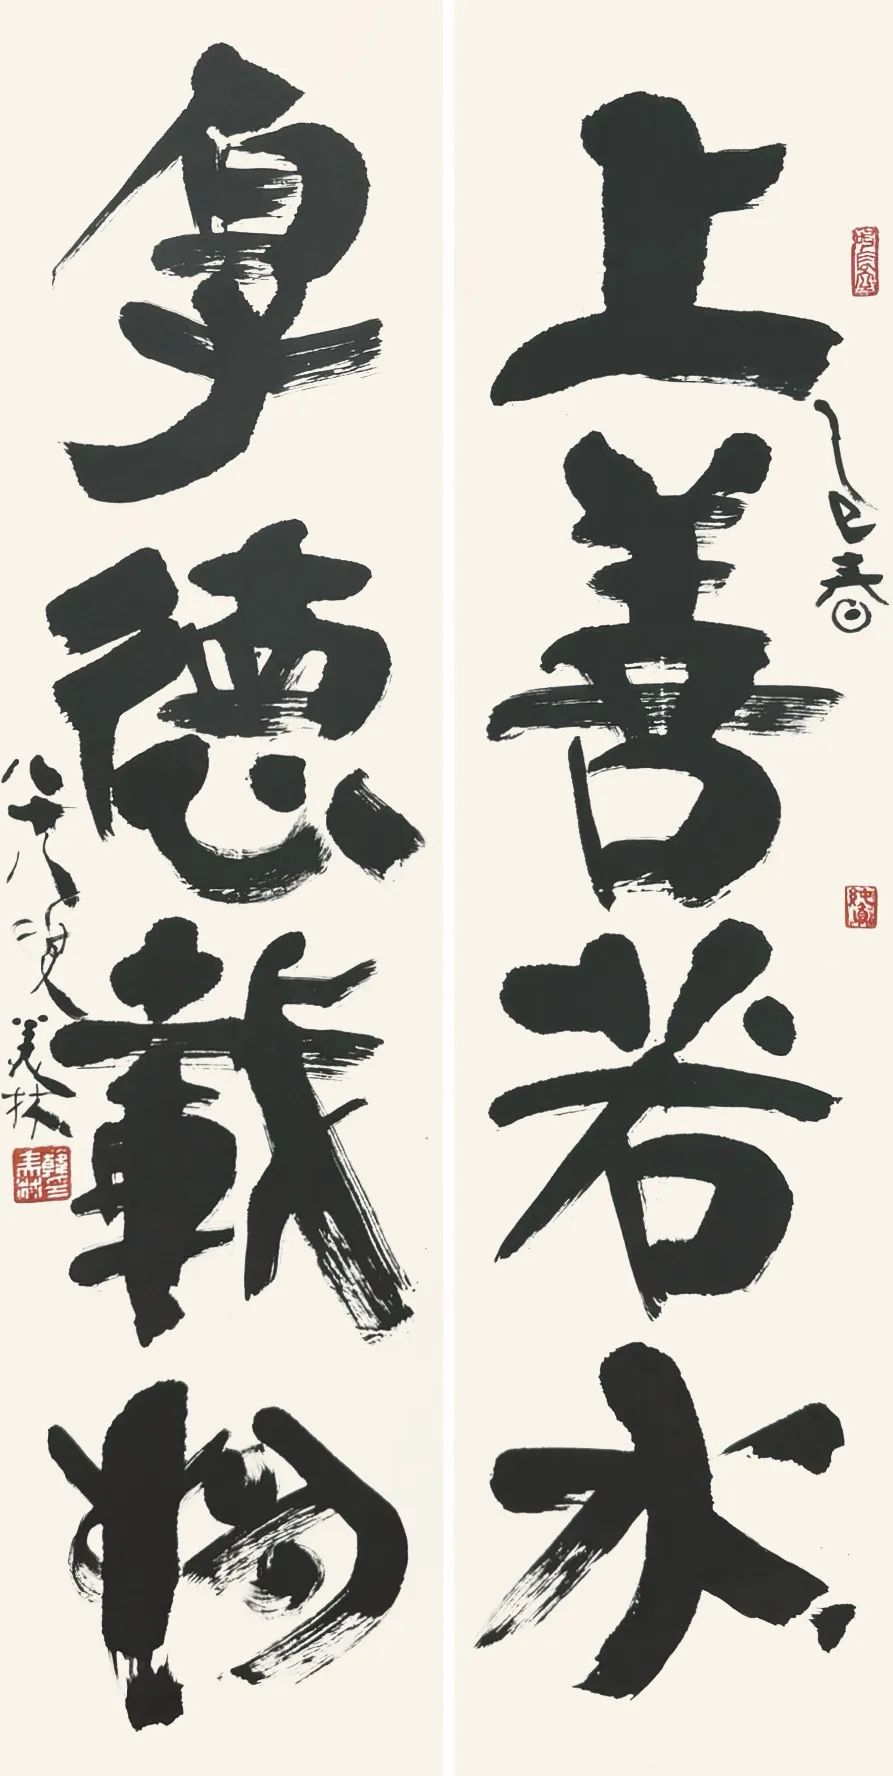 乙巳春
上善若水
厚德載物
八十八叟 美林
韓美林印